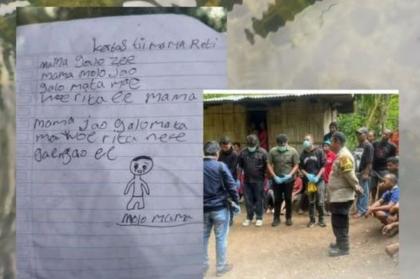 kertas tii mama Reti
mama galo zee
mama molo jao
galo mata mae
woe rita ee mama
mama jao galo mata
mae woe rita nee
gaegao ee
molo mama